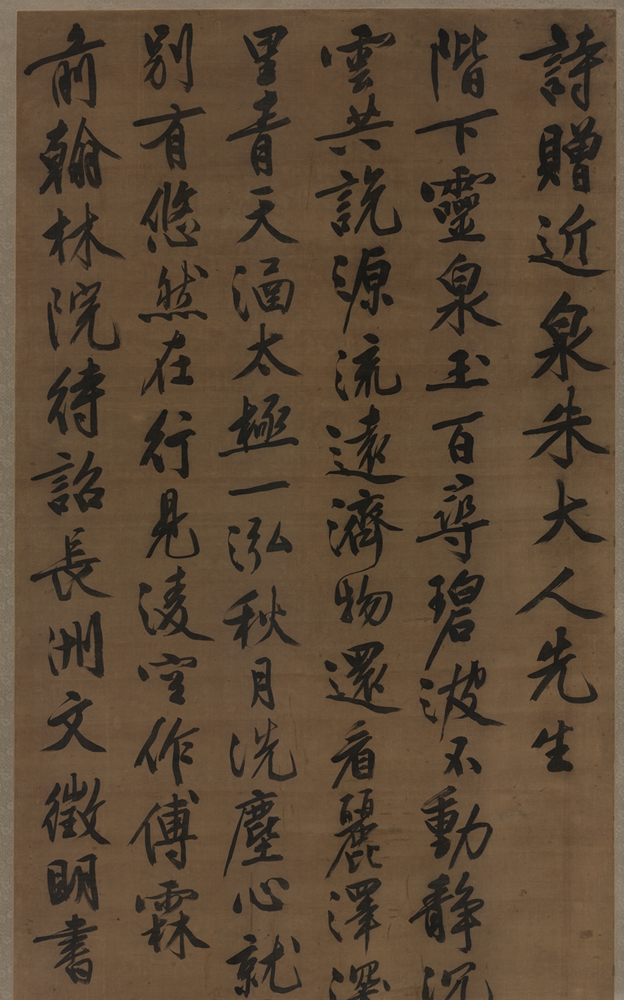 詩贈近泉朱大人先生
階下靈泉玉百尋碧波不動靜沉
雲共説源流遠濟物還看麗澤深
里青天涵太極一泓秋月洗塵心就
別有悠然在行見淩空作傅霖
前翰林院待詔長洲文徵明書